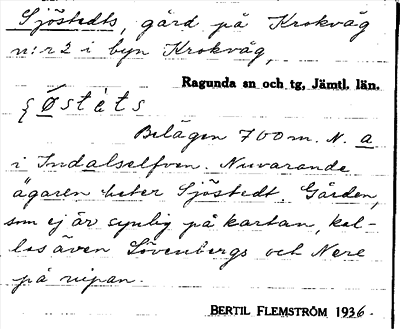 Sjöstedts, gård på Krokvåg
n:r 2 i byn Krokvåg,
Ragunda sn och tg, Jämtl. län.
Belägen 700 m. N. a
i Indalselfven. Nuvarande
ägaren heter Sjöstedt. Gården,
som ej är synlig på kartan, kal-
las även Lövenbergs och Nere
på nipan.
BERTIL FLEMSTRÖM 1936.